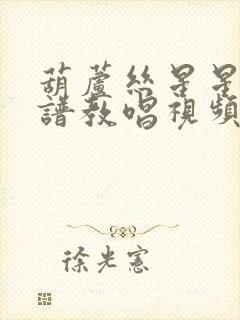 葫蘆絲星星
譜教唱視頻
徐光憲